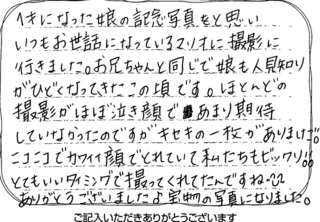 1才になった娘の記念写真をと思い
いつもお世話になっているマリオに撮影に
行きました。お兄ちゃんと同じで娘も人見知り
がひどくなってきたこの頃です。ほとんどの
撮影がほぼ泣き顔で あまり期待
していなかったのですがキセキの一枚がありました。
ニコニコでカワイイ顔でとれていて私たちもビックリ!!
とてもいいタイミングで撮ってくれてたんですね
ありがとうございましたよ 宝物の写真になりました。
ご記入いただきありがとうございます